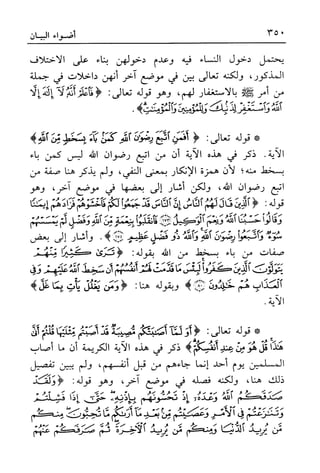 ٣٥٠ أضواء البيان
يحتمل دخول النساء فيه وعدم دخولهن بناء على الاختلاف
المذكور، ولكنه تعالى بين في موضع آخر أنهن داخلات في جملة
من أمر ﷺ بالاستغفار لهم، وهو قوله تعالى: ﴿فَاعْلَمْ أَنَّهُ لَا إِلَهَ إِلَّا
اللَّهُ وَاسْتَغْفِرْ لِذَنبِكَ وَلِلْمُؤْمِنِينَ وَالْمُؤْمِنَاتِ﴾.
* قوله تعالى: ﴿أَفَمَنِ اتَّبَعَ رِضْوَانَ اللَّهِ كَمَن بَاءَ بِسَخَطٍ مِّنَ اللَّهِ﴾
الآية. ذكر في هذه الآية أن من اتبع رضوان الله ليس كمن باء
بسخط منه؛ لأن همزة الإنكار بمعنى النفي، ولم يذكر هنا صفة من
اتبع رضوان الله، ولكن أشار إلى بعضها في موضع آخر، وهو
قوله: ﴿الَّذِينَ قَالَ لَهُمُ النَّاسُ إِنَّ النَّاسَ قَدْ جَمَعُوا لَكُمْ فَاخْشَوْهُمْ فَزَادَهُمْ إِيمَانًا
وَقَالُوا حَسْبُنَا اللَّهُ وَنِعْمَ الْوَكِيلُ ﴿١٧٣﴾ فَانقَلَبُوا بِنِعْمَةٍ مِّنَ اللَّهِ وَفَضْلٍ لَّمْ يَمْسَسْهُمْ
سُوءٌ وَاتَّبَعُوا رِضْوَانَ اللَّهِ وَاللَّهُ ذُو فَضْلٍ عَظِيمٍ ﴿١٧٤﴾﴾. وأشار إلى بعض
صفات من باء بسخط من الله بقوله: ﴿تَرَى كَثِيرًا مِّنْهُمْ
يَتَوَلَّوْنَ الَّذِينَ كَفَرُوا لَبِئْسَ مَا قَدَّمَتْ لَهُمْ أَنفُسُهُمْ أَن سَخِطَ اللَّهُ عَلَيْهِمْ وَفِي
الْعَذَابِ هُمْ خَالِدُونَ ﴿٨٠﴾﴾ وبقوله هنا: ﴿وَمَن يَغْلُلْ يَأْتِ بِمَا غَلَّ﴾
الآية.
* قوله تعالى: ﴿أَوَلَمَّا أَصَابَتْكُم مُّصِيبَةٌ قَدْ أَصَبْتُم مِّثْلَيْهَا قُلْتُمْ أَنَّى
هَذَا قُلْ هُوَ مِنْ عِندِ أَنفُسِكُمْ﴾ ذكر في هذه الآية الكريمة أن ما أصاب
المسلمين يوم أحد إنما جاءهم من قبل أنفسهم، ولم يبين تفصيل
ذلك هنا، ولكنه فصله في موضع آخر، وهو قوله: ﴿وَلَقَدْ
صَدَقَكُمُ اللَّهُ وَعْدَهُ إِذْ تَحُسُّونَهُم بِإِذْنِهِ حَتَّى إِذَا فَشِلْتُمْ
وَتَنَازَعْتُمْ فِي الْأَمْرِ وَعَصَيْتُم مِّن بَعْدِ مَا أَرَاكُم مَّا تُحِبُّونَ مِنكُم
مَّن يُرِيدُ الدُّنْيَا وَمِنكُم مَّن يُرِيدُ الْآخِرَةَ ثُمَّ صَرَفَكُمْ عَنْهُمْ